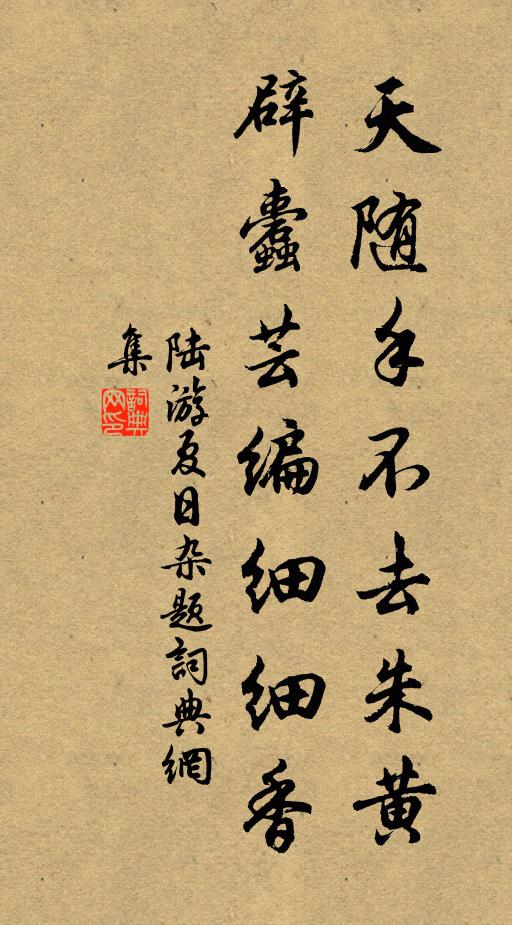 天随手不去朱黄
辟蠹芸编细细香
陆游夏日杂题詞典網
集
詞典
网印